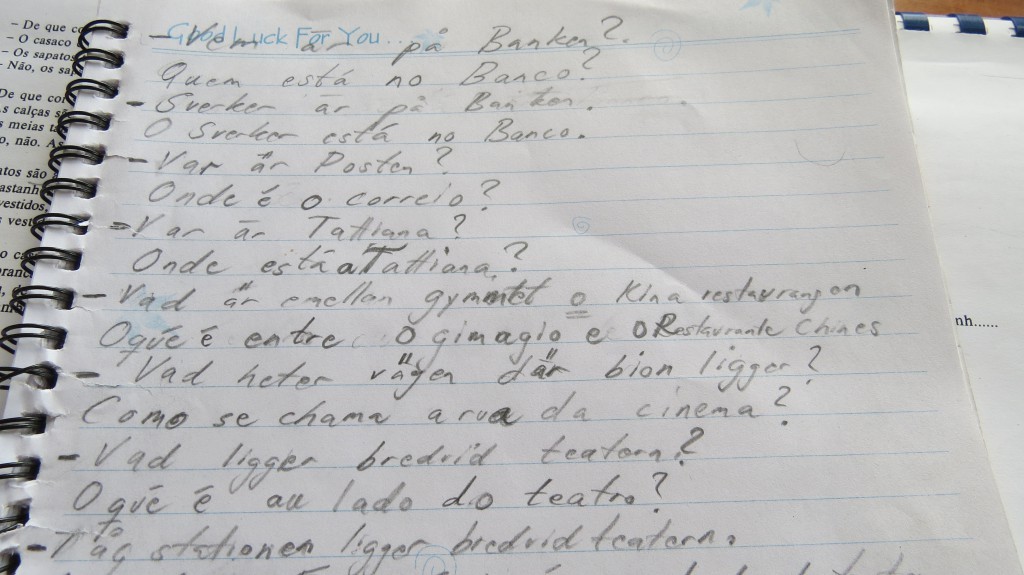 Good Luck For You...
- Vem är på Banken?
Quem está no Banco?
- Sverker är på Banken.
O Sverker está no Banco.
- Var är Posten?
Onde é o correio?
- Var är Tattiana?
Onde está a Tattiana?
- Vad är emellan gymmet o Kina restaurangen
O qué é entre o gimagio e o Restaurante Chines
- Vad heter vägen där bion ligger?
Como se chama a rua da cinema?
- Vad ligger bredvid teatern?
O qué é au lado do teatro?
- Tåg stationen ligger bredvid teatern.
- De que co
- O casaco
- Os sapatos
- Não, os sap
De que cor
s calças s
s meias ta
o, não. As
atos são
astanh
vestidos,
s vest
o ca
ranc
nh......